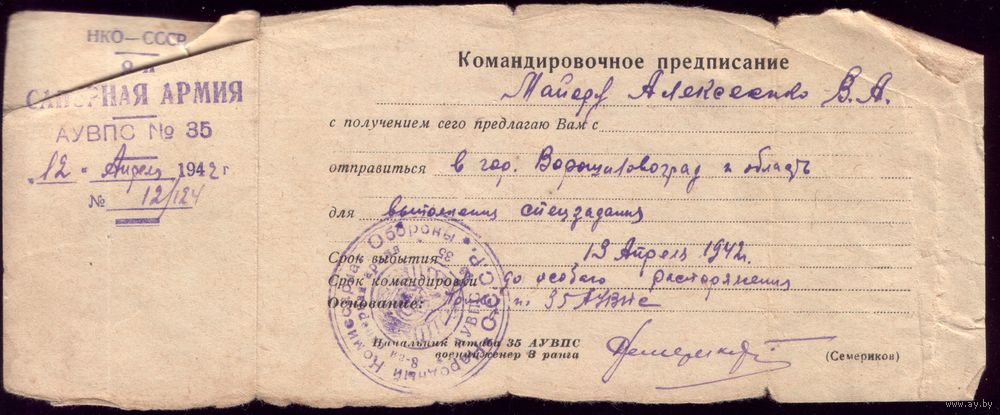 НКО—СССР
8-я
САПЕРНАЯ АРМИЯ
АУВПС № 35
"12" Апрель 1942 г
№ 12/124
Командировочное предписание
Майору Алексеенко В.А.
с получением сего предлагаю Вам с
отправиться в гор. Ворошиловград и область
для выполнения спецзадания
Срок выбытия 13 Апрель 1942 г.
Срок командировки до особого распоряжения
Основание: 35 АУВПС
Начальник штаба 35 АУВПС
военинженер 3 ранга
(Семериков)
Народный Комиссариат Обороны С.С.С.Р.
8-ая Саперная армия
35 АУВПС
www.ay.by